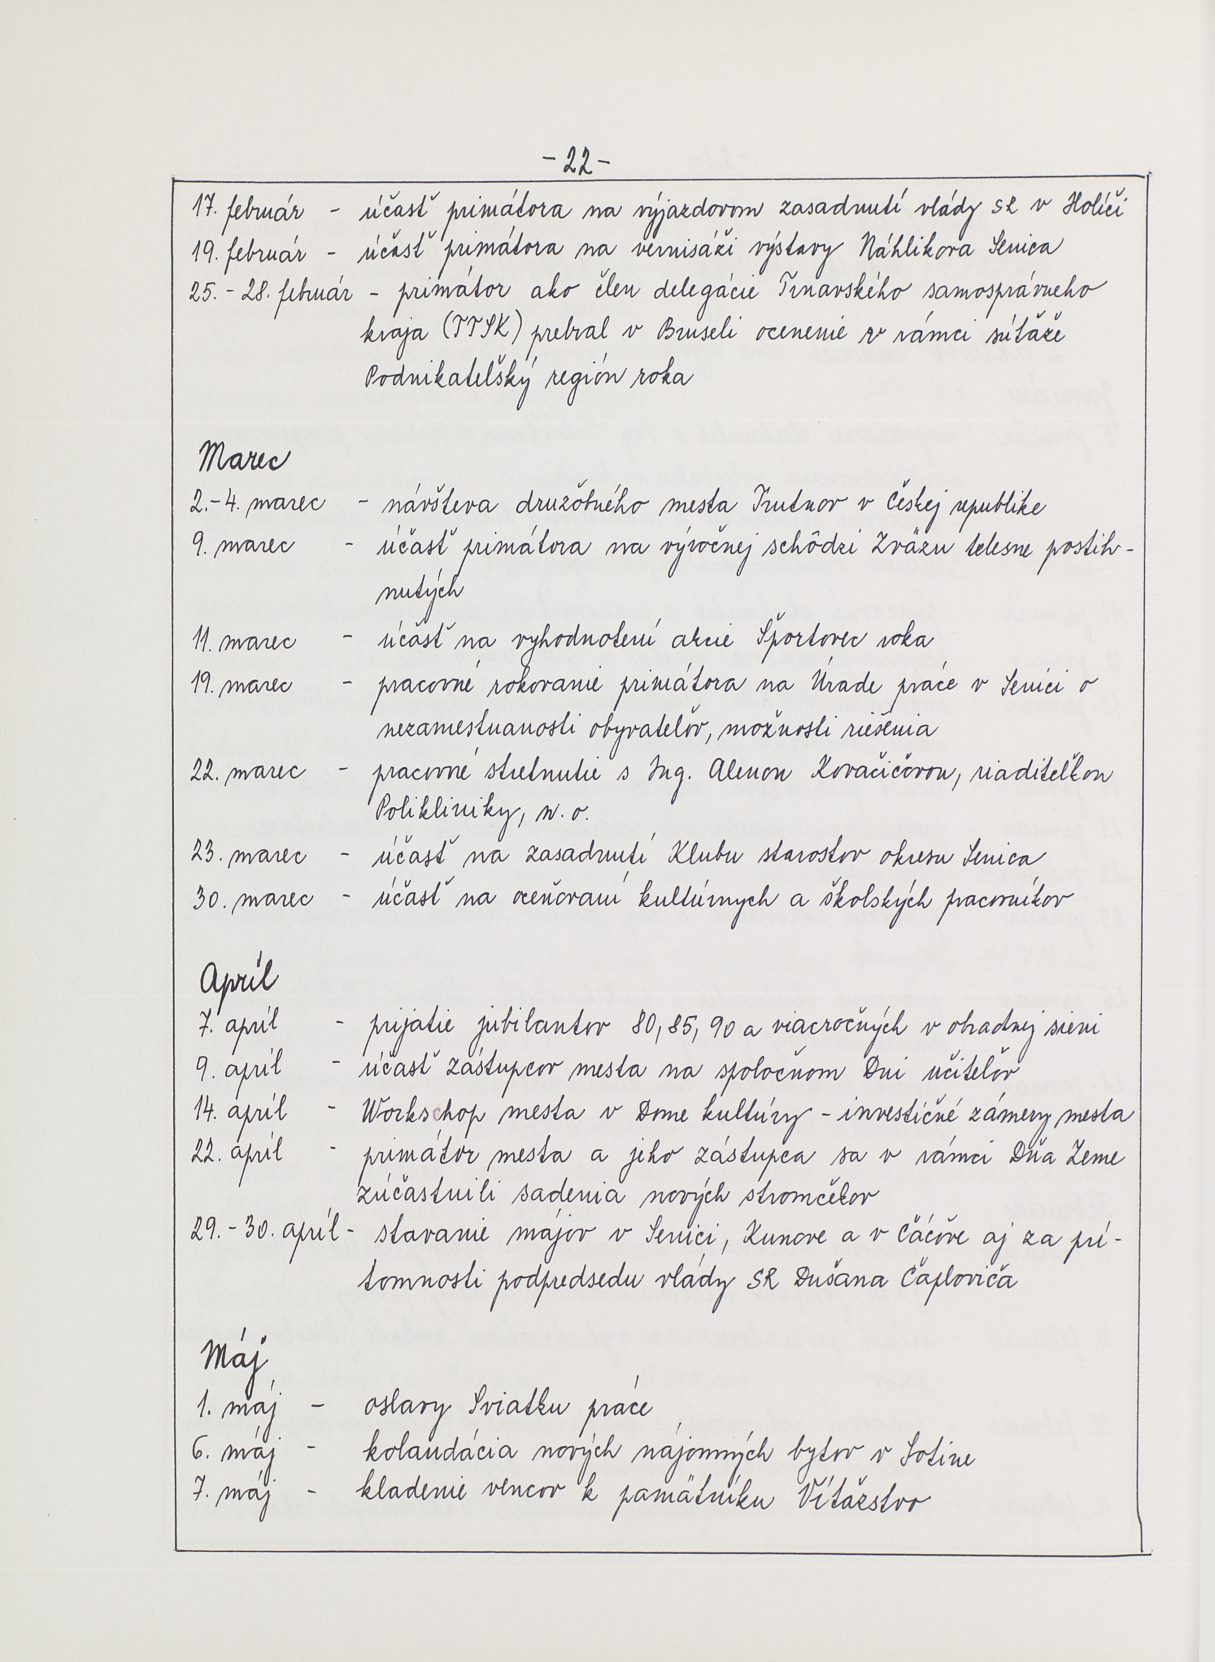 - 22 -
17. február - účasť primátora na výjazdovom zasadnutí vlády SR v Holíči
19. február - účasť primátora na vernisáži výstavy Náhlikova Senica
25. - 28. február - primátor ako člen delegácie Trnavského samosprávneho
kraja (TTSK) prebral v Bruseli ocenenie v rámci súťaže
Podnikateľský región roka
Marec
2. - 4. marec - návšteva družobného mesta Trutnov v Českej republike
9. marec - účasť primátora na výročnej schôdzi Zväzu telesne postih-
nutých
11. marec - účasť na vyhodnotení akcie Športovec roka
19. marec - pracovné rokovanie primátora na Úrade práce v Senici o
nezamestnanosti obyvateľov, možnosti riešenia
22. marec - pracovné stretnutie s Ing. Alenou Kovačičovou, riaditeľkou
Polikliniky, n. o.
23. marec - účasť na zasadnutí Klubu starostov okresu Senica
30. marec - účasť na oceňovaní kultúrnych a školských pracovníkov
Apríl
7. apríl - prijatie jubilantov 80, 85, 90 a viacročných v obradnej sieni
9. apríl - účasť zástupcov mesta na spoločnom Dni učiteľov
14. apríl - Workschop mesta v Dome kultúry - investičné zámery mesta
22. apríl - primátor mesta a jeho zástupca sa v rámci Dňa Zeme
zúčastnili sadenia nových stromčekov
29. - 30. apríl - stavanie májov v Senici, Kunove a v Čáčove aj za prí-
tomnosti podpredsedu vlády SR Dušana Čaploviča
Máj
1. máj - oslavy Sviatku práce
6. máj - kolaudácia nových nájomných bytov v Sotine
7. máj - kladenie vencov k pamätníku Víťazstvo